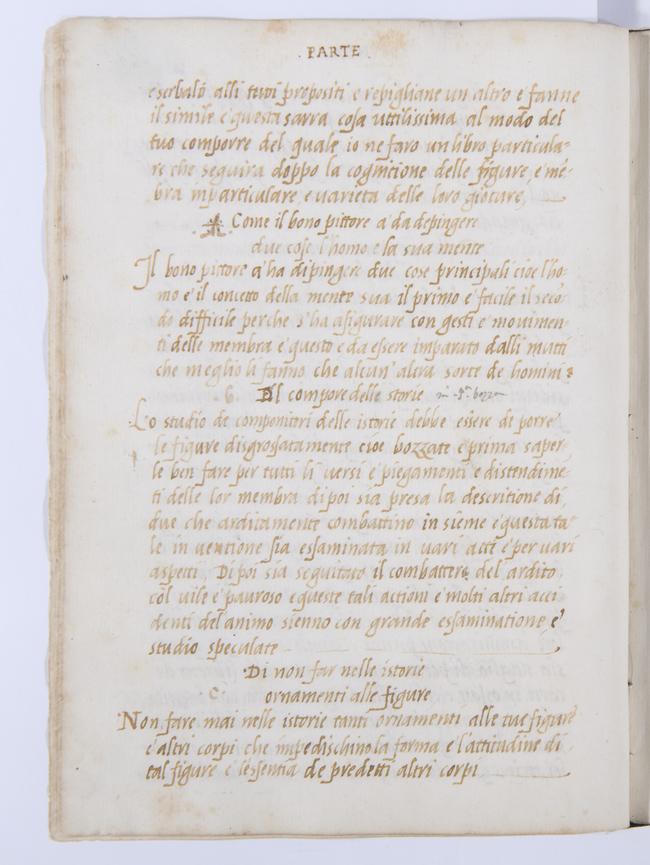 . PARTE .
e serbalo alli tuoi propositi e repigliane un altro e fanne
il simile e questa sarra cosa uttilissima al modo del
tuo comporre del quale io ne faro un libro particula-
re che seguira doppo la cognitione delle figure, e mē-
bra inparticulare, e varieta delle loro giōture,
Come il bono pittore a da depingere
due cose l'homo e la sua mente
Il bono pittore a'ha dipingere due cose principali cioe l'ho-
mo e il concetto della mente sua il primo e facile il secō-
do difficile perche s'ha afigurare con gesti e movimen-
ti delle membra e questo e da essere imparato dalli mutti
che meglio li fanno che alcun'altra sorte de homini
6. Del compore delle storie in pª
Lo studio de componitori delle istorie debbe essere di porre
le figure disgrossatamente cioe bozzate e prima saper-
le ben fare per tutti li versi e piegamenti e distendime-
ti delle lor membra di poi sia presa la descritione di
due che arditamente combattino in sieme e questa ta-
le in ventione sia essaminata in vari atti e per vari
aspetti, Di poi sia seguitato il combattere del ardito
col vile e pauroso e queste tali actioni e molti altri acci-
denti del animo sienno con grande essaminatione e'
studio speculate
Di non far nelle istorie
ornamenti alle figure
Non fare mai nelle istorie tanti ornamenti alle tue figure
e altri corpi che impedischino la forma e l'attitudine di
tal figure e l'essentia de predetti altri corpi